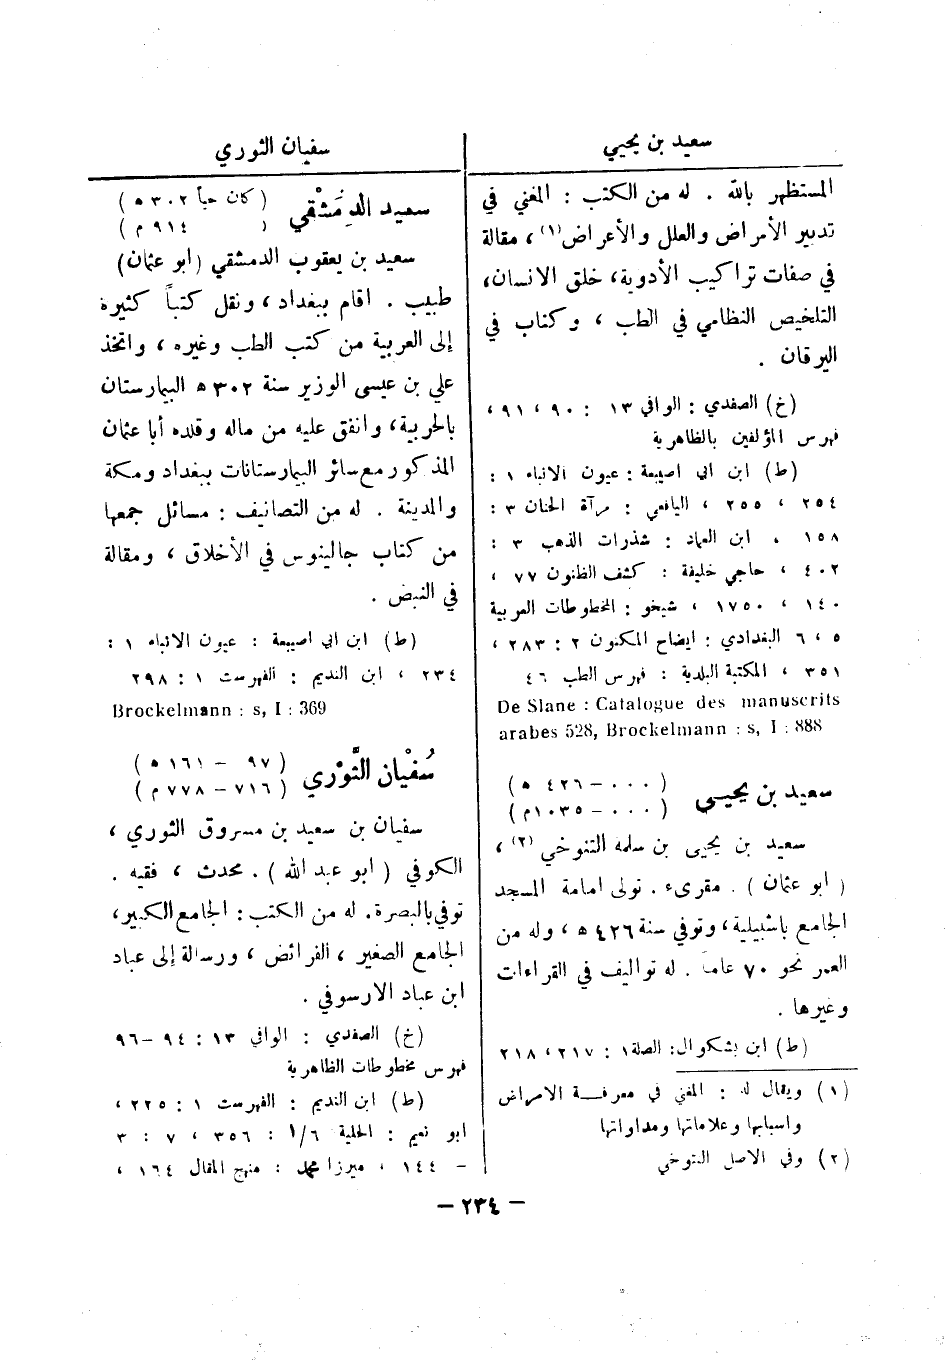 سعيد بن يحيي
المستظهر بالله . له من الكتب : المغني في
تدبير الأمراض والعلل والأعراض(١)، مقالة
في صفات تراكيب الأدوية، خلق الانسان،
التلخيص النظامي في الطب ، وكتاب في
اليرقان .
(خ) الصفدي : الوافي ١٣ : ٩٠، ٩١،
فهرس المؤلفين بالظاهرية
(ط) ابن ابي اصيبعة : عيون الانباء ١ :
٢٥٤ ، ٢٥٥ ، اليافعي : مرآة الجنان ٣ :
١٥٨ ، ابن العماد : شذرات الذهب ٣ :
٤٠٢ ، حاجي خليفة : كشف الظنون ٧٧ ،
١٤٠ ، ١٧٥٠ ، شيخو : المخطوطات العربية
٥ ، ٦ البغدادي : ايضاح المكنون ٢ : ٢٨٣ ،
٣٥١ ، المكتبة البلدية : فهرس الطب ٤٦
De Slane : Catalogue des manuscrits
arabes 528, Brockelmann : s, I : 888
سعيد بن يحيى (٠٠٠ – ٤٢٦ ه)
(٠٠٠ – ١٠٣٥ م)
سعيد بن يحيى بن سلمة التنوخي (٢) ،
( ابو عثمان ) . مقرىء . تولى امامة المسجد
الجامع باشبيلية، وتوفي سنة ٤٢٦ ه ، وله من
العمر نحو ٧٠ عاماً . له تواليف في القراءات
وغيرها .
(ط) ابن بشكوال: الصلة ١ : ٢١٧، ٢١٨
(١) ويقال له : المغني في معرفة الامراض
واسبابها وعلاماتها ومداواتها
(٢) وفي الاصل التوخي
سفيان الثوري
سعيد الدِمَشْقي (كان حياً ٣٠٢ ه)
( ٩١٤ م)
سعيد بن يعقوب الدمشقي (ابو عثمان)
طبيب . اقام ببغداد ، ونقل كتباً كثيرة
إلى العربية من كتب الطب وغيره ، واتخذ
علي بن عيسى الوزير سنة ٣٠٢ ه البيمارستان
بالحربية، وانفق عليه من ماله وقلده أبا عثمان
المذكور مع سائر البيمارستانات ببغداد ومكة
والمدينة . له من التصانيف : مسائل جمعها
من كتاب جالينوس في الأخلاق ، ومقالة
في النبض .
(ط) ابن ابي اصيبعة : عيون الانباء ١ :
٢٣٤ ، ابن النديم : الفهرست ١ : ٢٩٨
Brockelmann : s, I : 369
سُفْيان الثَّوْري (٩٧ – ١٦١ ه)
(٧١٦ – ٧٧٨ م)
سفيان بن سعيد بن مسروق الثوري ،
الكوفي ( ابو عبد الله ) . محدث ، فقيه .
توفي بالبصرة. له من الكتب : الجامع الكبير،
الجامع الصغير ، الفرائض ، ورسالة إلى عباد
ابن عباد الارسوفي .
(خ) الصفدي : الوافي ١٣ : ٩٤ – ٩٦
فهرس مخطوطات الظاهرية
(ط) ابن النديم : الفهرست ١ : ٢٢٥ ،
ابو نعيم : الحلية ١/٦ : ٣٥٦ ، ٧ : ٣
– ١٤٤ ، ميرزا محمد : منهج المقال ١٦٤ ،
– ٢٣٤ –